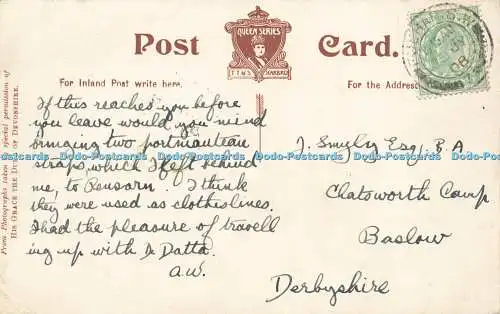 Post Card.
QUEEN SERIES
For Inland Post write here.
For the Address
From Photographs taken by special permission of
HIS GRACE THE DUKE OF DEVONSHIRE.
If this reaches you before
you leave would you mind
bringing two portmanteau
straps, which I left behind
me, to Rousarn. I think
they were used as clotheslines.
I had the pleasure of travell
ing up with Dr Datta.
A.W.
J. Smyly Esq. B.A
Chatsworth Camp
Baslow
Derbyshire
Dodo-Postcards Dodo-Postcards Dodo-Postcards Dodo-Postcards Dodo-Postcards